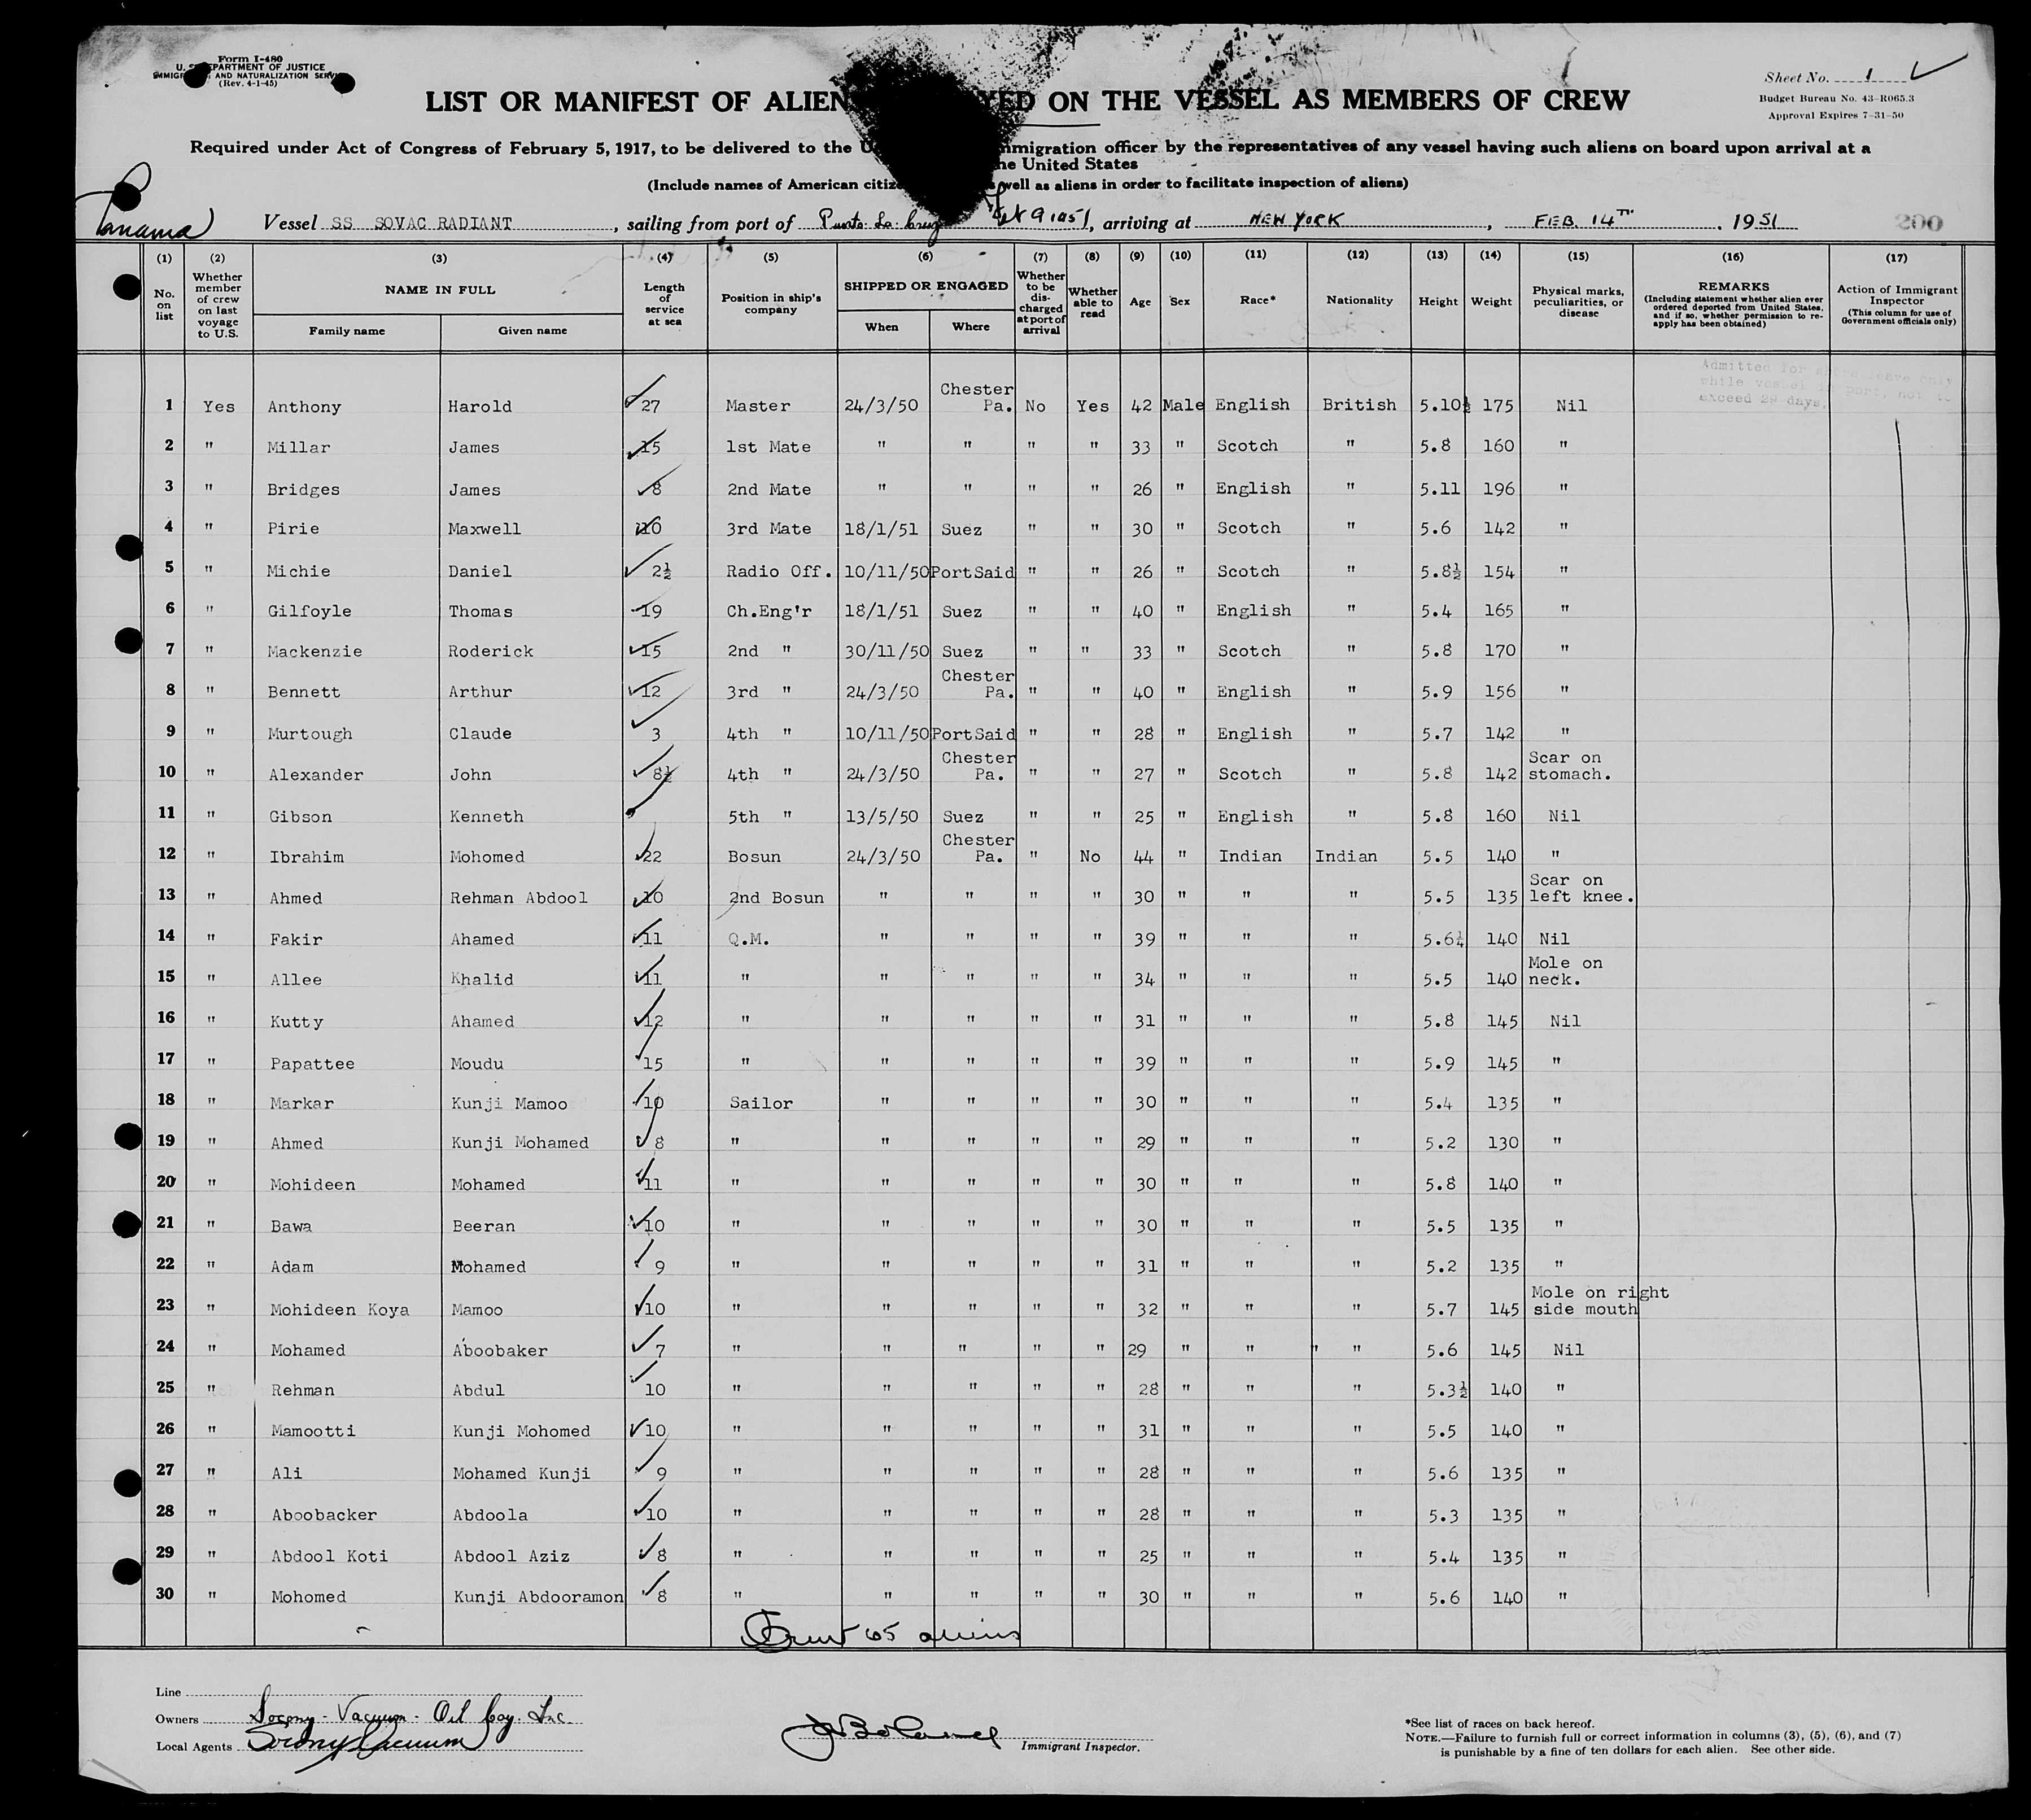 Form I-480
U. S. DEPARTMENT OF JUSTICE
IMMIGRATION AND NATURALIZATION SERVICE
(Rev. 4-1-45)
Sheet No. 1
Budget Bureau No. 43-R065.3
Approval Expires 7-31-50
LIST OR MANIFEST OF ALIEN YED ON THE VESSEL AS MEMBERS OF CREW
Required under Act of Congress of February 5, 1917, to be delivered to the U mmigration officer by the representatives of any vessel having such aliens on board upon arrival at a
he United States
(Include names of American citize well as aliens in order to facilitate inspection of aliens)
Panama Vessel SS SOVAC RADIANT, sailing from port of Puerto La Cruz Feb 9 1951, arriving at NEW YORK, FEB. 14TH, 1951 200
(1) (2) (3) (4) (5) (6) (7) (8) (9) (10) (11) (12) (13) (14) (15) (16) (17)
No. on list Whether member of crew on last voyage to U.S. NAME IN FULL Family name Given name Length of service at sea Position in ship's company SHIPPED OR ENGAGED When Where Whether to be discharged at port of arrival Whether able to read Age Sex Race* Nationality Height Weight Physical marks, peculiarities, or disease REMARKS (Including statement whether alien ever ordered deported from United States, and if so, whether permission to reapply has been obtained) Action of Immigrant Inspector (This column for use of Government officials only)
Admitted for shore leave only
while vessel in port, not to
exceed 29 days.
1 Yes Anthony Harold 27 Master 24/3/50 Chester Pa. No Yes 42 Male English British 5.10½ 175 Nil
2 " Millar James 15 1st Mate " " " " 33 " Scotch " 5.8 160 "
3 " Bridges James 8 2nd Mate " " " " 26 " English " 5.11 196 "
4 " Pirie Maxwell 10 3rd Mate 18/1/51 Suez " " 30 " Scotch " 5.6 142 "
5 " Michie Daniel 2½ Radio Off. 10/11/50 PortSaid " " 26 " Scotch " 5.8½ 154 "
6 " Gilfoyle Thomas 19 Ch.Eng'r 18/1/51 Suez " " 40 " English " 5.4 165 "
7 " Mackenzie Roderick 15 2nd " 30/11/50 Suez " " 33 " Scotch " 5.8 170 "
8 " Bennett Arthur 12 3rd " 24/3/50 Chester Pa. " " 40 " English " 5.9 156 "
9 " Murtough Claude 3 4th " 10/11/50 PortSaid " " 28 " English " 5.7 142 "
10 " Alexander John 8½ 4th " 24/3/50 Chester Pa. " " 27 " Scotch " 5.8 142 Scar on stomach.
11 " Gibson Kenneth 5th " 13/5/50 Suez " " 25 " English " 5.8 160 Nil
12 " Ibrahim Mohomed 22 Bosun 24/3/50 Chester Pa. " No 44 " Indian Indian 5.5 140 "
13 " Ahmed Rehman Abdool 10 2nd Bosun " " " " 30 " " " 5.5 135 Scar on left knee.
14 " Fakir Ahamed 11 Q.M. " " " " 39 " " " 5.6¼ 140 Nil
15 " Allee Khalid 11 " " " " " 34 " " " 5.5 140 Mole on neck.
16 " Kutty Ahamed 12 " " " " " 31 " " " 5.8 145 Nil
17 " Papattee Moudu 15 " " " " " 39 " " " 5.9 145 "
18 " Markar Kunji Mamoo 10 Sailor " " " " 30 " " " 5.4 135 "
19 " Ahmed Kunji Mohamed 8 " " " " " 29 " " " 5.2 130 "
20 " Mohideen Mohamed 11 " " " " " 30 " " " 5.8 140 "
21 " Bawa Beeran 10 " " " " " 30 " " " 5.5 135 "
22 " Adam Mohamed 9 " " " " " 31 " " " 5.2 135 "
23 " Mohideen Koya Mamoo 10 " " " " " 32 " " " 5.7 145 Mole on right side mouth
24 " Mohamed Aboobaker 7 " " " " " 29 " " " 5.6 145 Nil
25 " Rehman Abdul 10 " " " " " 28 " " " 5.3½ 140 "
26 " Mamootti Kunji Mohomed 10 " " " " " 31 " " " 5.5 140 "
27 " Ali Mohamed Kunji 9 " " " " " 28 " " " 5.6 135 "
28 " Aboobacker Abdoola 10 " " " " " 28 " " " 5.3 135 "
29 " Abdool Koti Abdool Aziz 8 " " " " " 25 " " " 5.4 135 "
30 " Mohomed Kunji Abdooramon 8 " " " " " 30 " " " 5.6 140 "
65 aliens
Line
Owners Socony-Vacuum-Oil Coy. Inc.
Local Agents Socony Vacuum
Immigrant Inspector.
*See list of races on back hereof.
NOTE.—Failure to furnish full or correct information in columns (3), (5), (6), and (7)
is punishable by a fine of ten dollars for each alien. See other side.